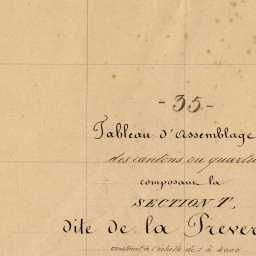 - 35 -
Tableau d'Assemblage
des cantons ou quartie
composant la
SECTION T,
dite de la Prever
construit à l'échelle de 1 à 4000